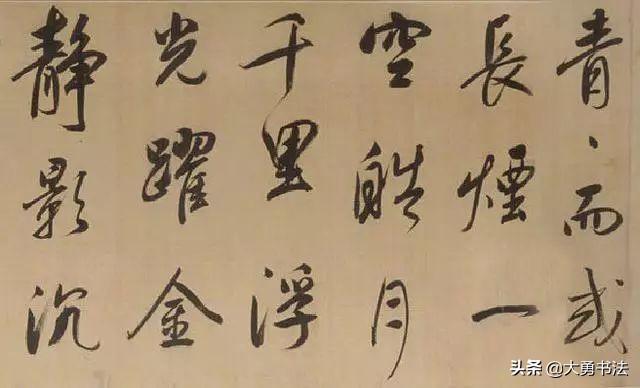 青、而或
長煙一
空皓月
千里浮
光躍金
靜影沉
头条 @大勇书法